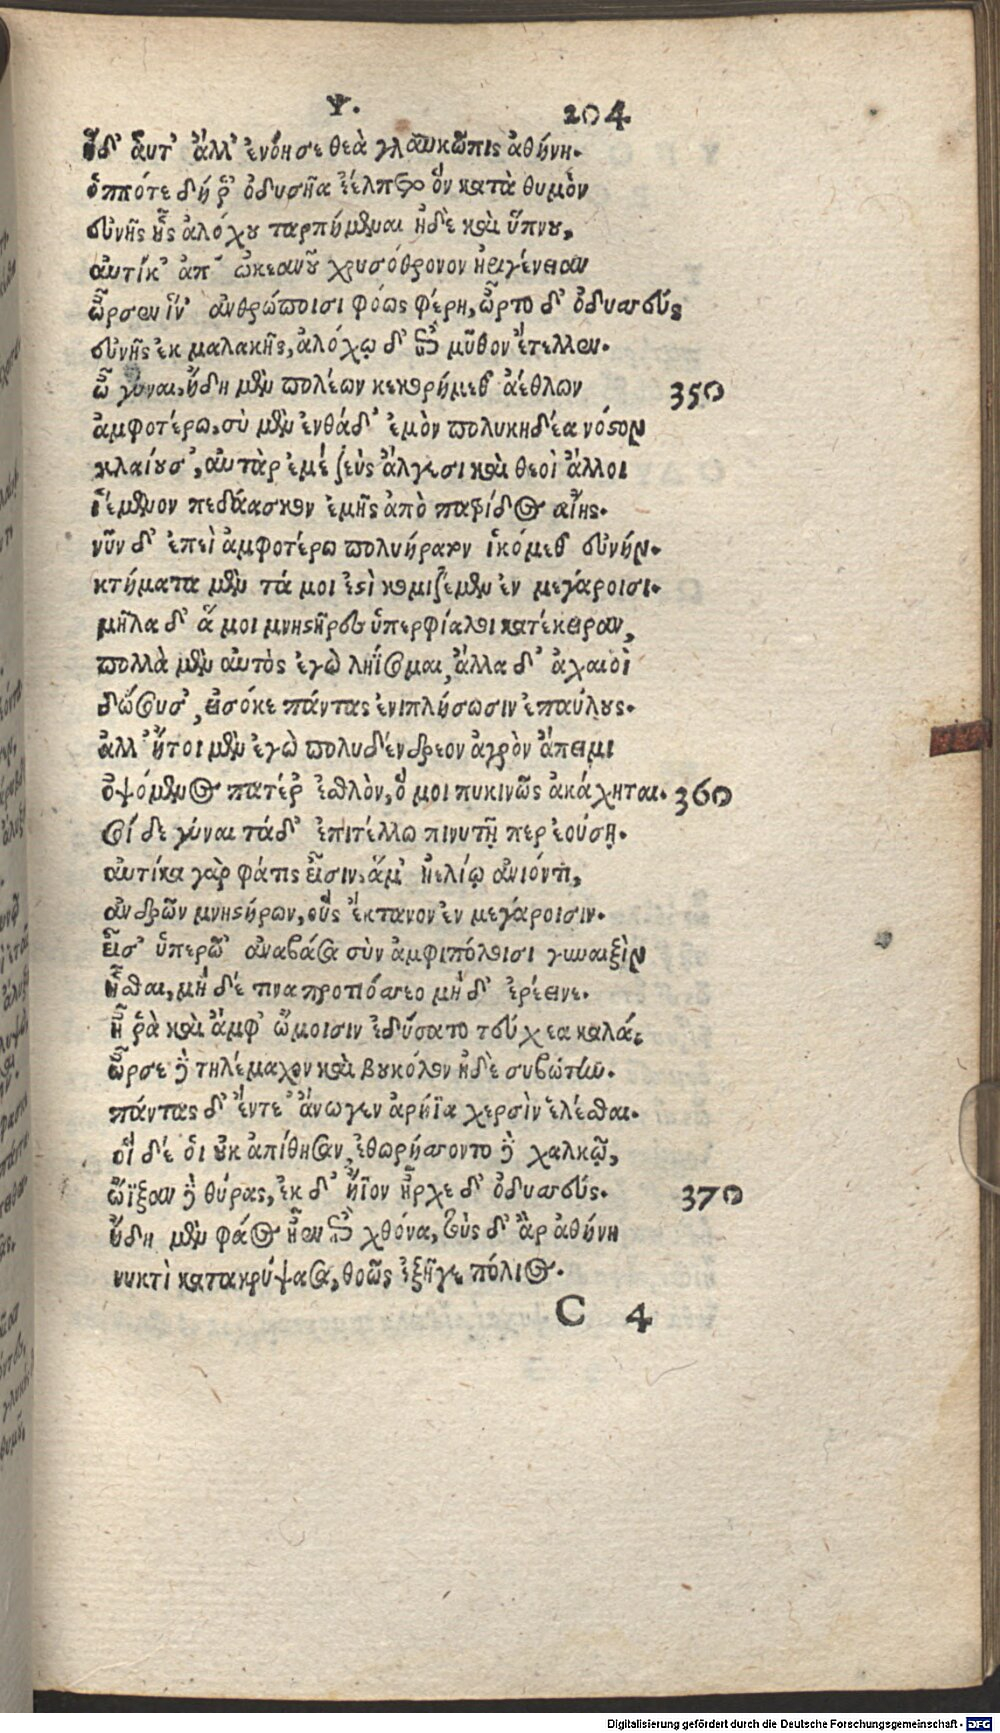 Ψ. 204
ἡ δ' αὖτ' ἄλλ' ἐνόησε θεὰ γλαυκῶπις ἀθήνη.
ὁππότε δή ῥ' ὀδυσῆα ἐέλπετο ὃν κατὰ θυμὸν
εὐνῆς ἧς ἀλόχου ταρπήμεναι ἠδὲ καὶ ὕπνου,
αὐτίκ' ἀπ' ὠκεανοῦ χρυσόθρονον ἠριγένειαν
ὦρσεν ἵν' ἀνθρώποισι φόως φέρῃ, ὦρτο δ' ὀδυσσεύς
εὐνῆς ἐκ μαλακῆς, ἀλόχῳ δ' ἐπὶ μῦθον ἔτελλεν.
ὦ γύναι, ἤδη μὲν πολέων κεκορήμεθ' ἀέθλων 350
ἀμφοτέρω, σὺ μὲν ἐνθάδ' ἐμὸν πολυκηδέα νόστον
κλαίουσ', αὐτὰρ ἐμέ ζεὺς ἄλγεσι καὶ θεοὶ ἄλλοι
ἱέμενον πεδάασκον ἐμῆς ἀπὸ πατρίδος αἴης.
νῦν δ' ἐπεὶ ἀμφοτέρω πολυήρατον ἱκόμεθ' εὐνήν.
κτήματα μὲν τά μοι ἐστὶ κομιζέμεν ἐν μεγάροισι.
μῆλα δ' ἅ μοι μνηστῆρες ὑπερφίαλοι κατέκειραν,
πολλὰ μὲν αὐτὸς ἐγὼ ληΐσομαι, ἄλλα δ' ἀχαιοὶ
δώσουσ', εἰσόκε πάντας ἐνιπλήσωσιν ἐπαύλους.
ἀλλ' ἤτοι μὲν ἐγὼ πολυδένδρεον ἀγρὸν ἄπειμι
ὀψόμενος πατέρ' ἐσθλὸν, ὅ μοι πυκινῶς ἀκάχηται. 360
σοί δε γύναι τάδ' ἐπιτέλλω πινυτῇ περ ἐούσῃ.
αὐτίκα γὰρ φάτις εἶσιν, ἅμ' ἠελίῳ ἀνιόντι,
ἀνδρῶν μνηστήρων, οὓς ἔκτανον ἐν μεγάροισιν.
εἰς ὑπερῷ' ἀναβᾶσα σὺν ἀμφιπόλοισι γυναιξὶν
ἧσθαι, μὴ δέ τινα προτιόσσεο μὴ δ' ἐρέεινε.
ἦ ῥὰ καὶ ἀμφ' ὤμοισιν ἐδύσατο τεύχεα καλά,
ὦρσε δὲ τηλέμαχον καὶ βουκόλον ἠδὲ συβώτην.
πάντας δ' ἔντε' ἄνωγεν ἀρήϊα χερσὶν ἑλέσθαι.
οἳ δέ οἱ οὐκ ἀπίθησαν, ἐθωρήσσοντο δὲ χαλκῷ,
ὤϊξαν δὲ θύρας, ἐκ δ' ἤϊον ἦρχε δ' ὀδυσσεύς. 370
ἤδη μὲν φάος ἦεν ἐπὶ χθόνα, τοὺς δ' ἂρ ἀθήνη
νυκτὶ κατακρύψασα, θοῶς ἐξῆγε πόλιος.
C 4
Digitalisierung gefördert durch die Deutsche Forschungsgemeinschaft - DFG